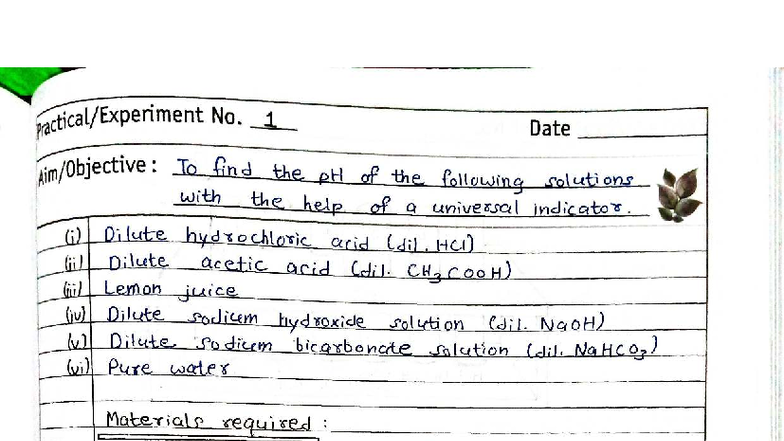 Practical/Experiment No. 1
Date
Aim/Objective : To find the pH of the following solutions
with the help of a universal indicator.
(i) Dilute hydrochloric acid (dil. HCl)
(ii) Dilute acetic acid (dil. CH₃COOH)
(iii) Lemon juice
(iv) Dilute sodium hydroxide solution (dil. NaOH)
(v) Dilute sodium bicarbonate solution (dil. NaHCO₃)
(vi) Pure water
Materials required :